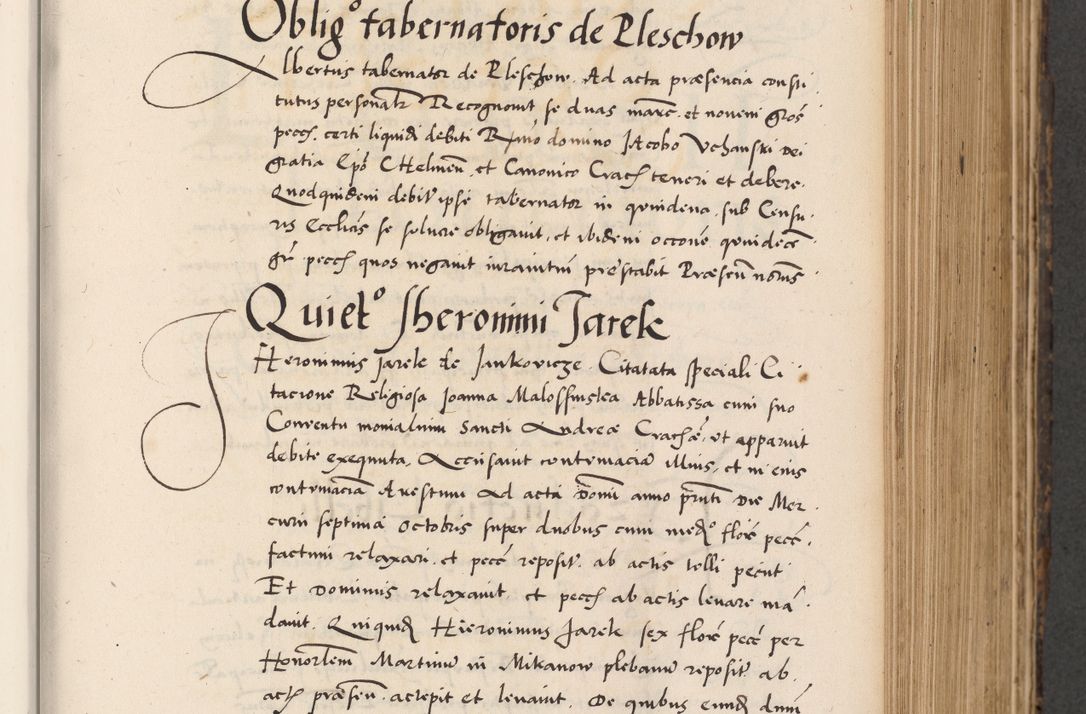 Oblig° tabernatoris de Pleschow
Albertus tabernator de Pleschow. Ad acta præsencia consti
tutus personalr Recognovit se duas marc. et novem gros
pecch. certi liquidi debiti Rndo domino Jacobo Uchanski Dei
gratia Epo CHelmen. et Canonico Crach teneri et debere.
Quodquidem debitum ipse tabernator in quindena sub Censu
ris Ecclicis se soluere obligavit. et ibidem occone quindecem
gr pecch quos negavit iuramentum præstabit Præsen notis
Quiet° Iheronimi Jarek
Hieronimus Jarek de Jankovicze Citatata speciali Ci
tacione Religiosa Joanna Malossinska Abbatissa cum suo
Conventu monialium sancti Andreæ Crach. ut apparuit
debite exequuta. Accusavit contumaciam illius. et in eius
contumaciam Arestum Ad acta Domi anno prnti Die Mer
curii septima octobris super duobus cum medio flor pecc.
factum relaxari. et pecc reposit. ab actis tolli peciit
Et Dominus relaxavit. et pecch ab actis levare man
davit. Quiquid Hieronimus Jarek sex flor pecc per
Honorlem Martinum in Mikanow plebanum reposit. ab.
act præsen. accepit et levavit. De quibus eund dnm